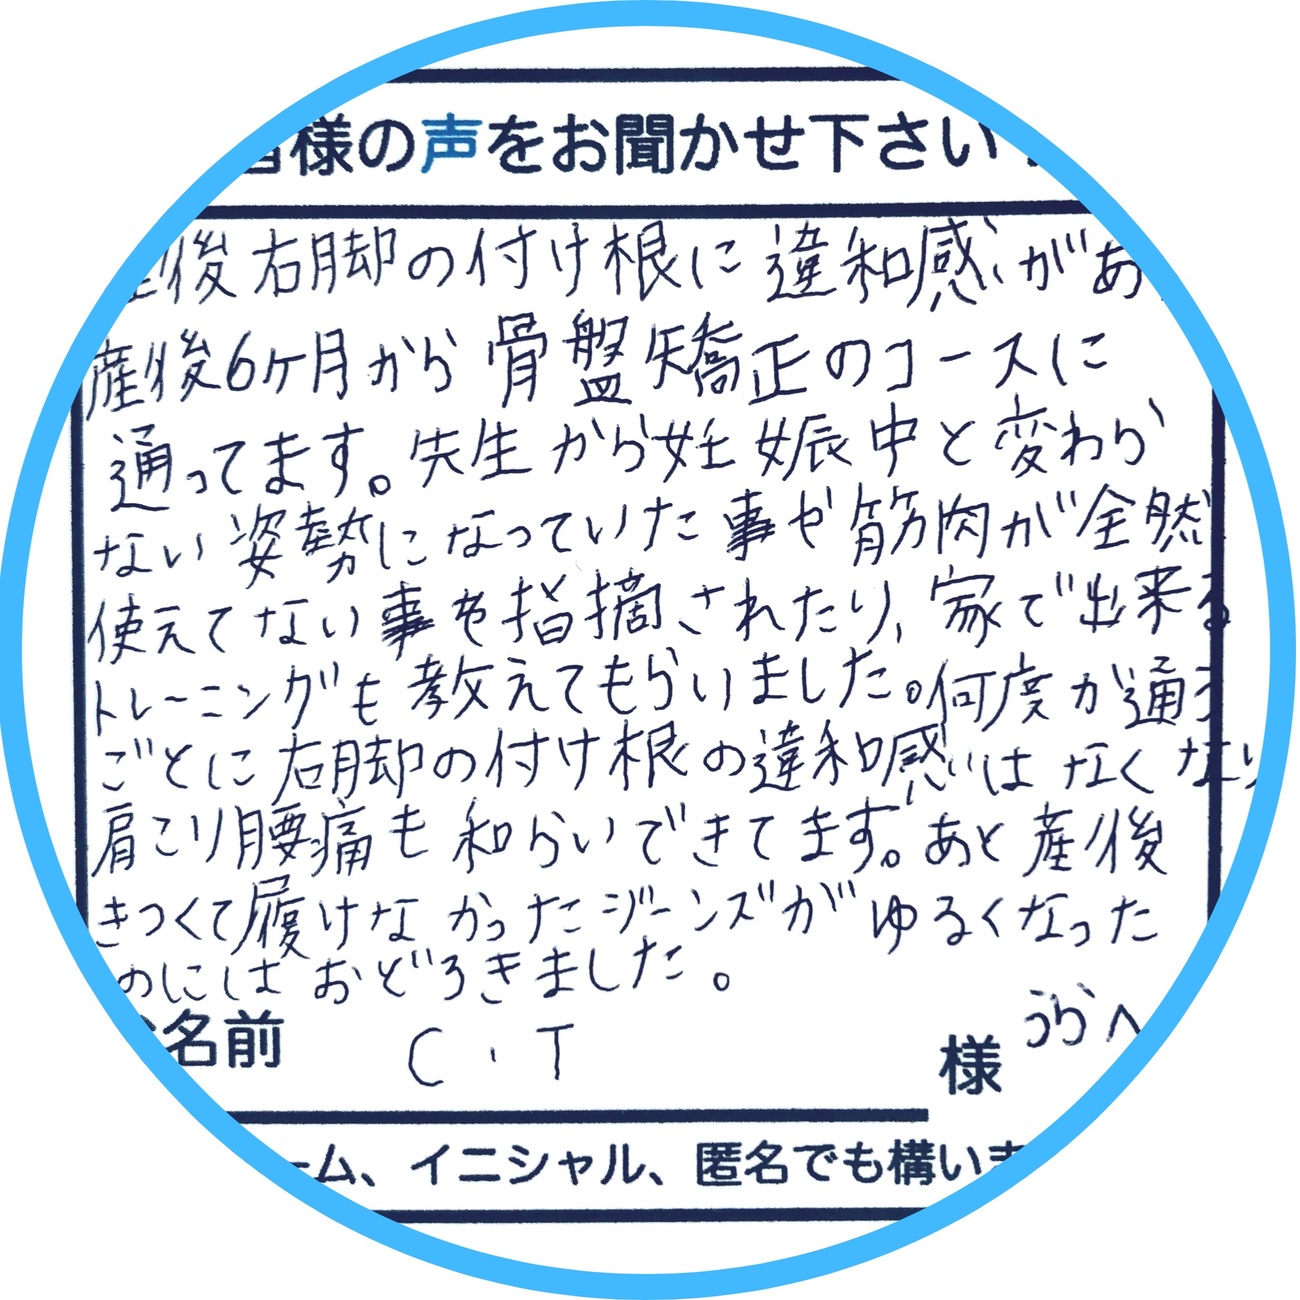 様の声をお聞かせ下さい
後右脚の付け根に違和感があ
産後6ケ月から骨盤矯正のコースに
通ってます。先生から妊娠中と変わら
ない姿勢になっていた事や筋肉が全然
使えてない事を指摘されたり、家で出来る
トレーニングも教えてもらいました。何度か通う
ごとに右脚の付け根の違和感はなくなり
肩こり腰痛も和らいできてます。あと産後
きつくて履けなかったジーンズがゆるくなった
のにはおどろきました。
名前 C・T 様 うらへ
ーム、イニシャル、匿名でも構いま